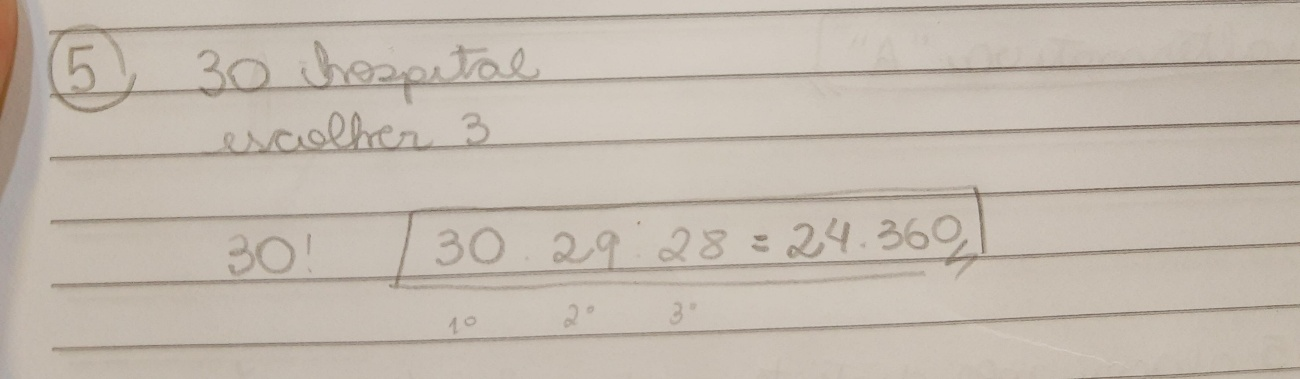 5) 30 hospital
escolher 3
30! 30 . 29 . 28 = 24.360
1º 2º 3º